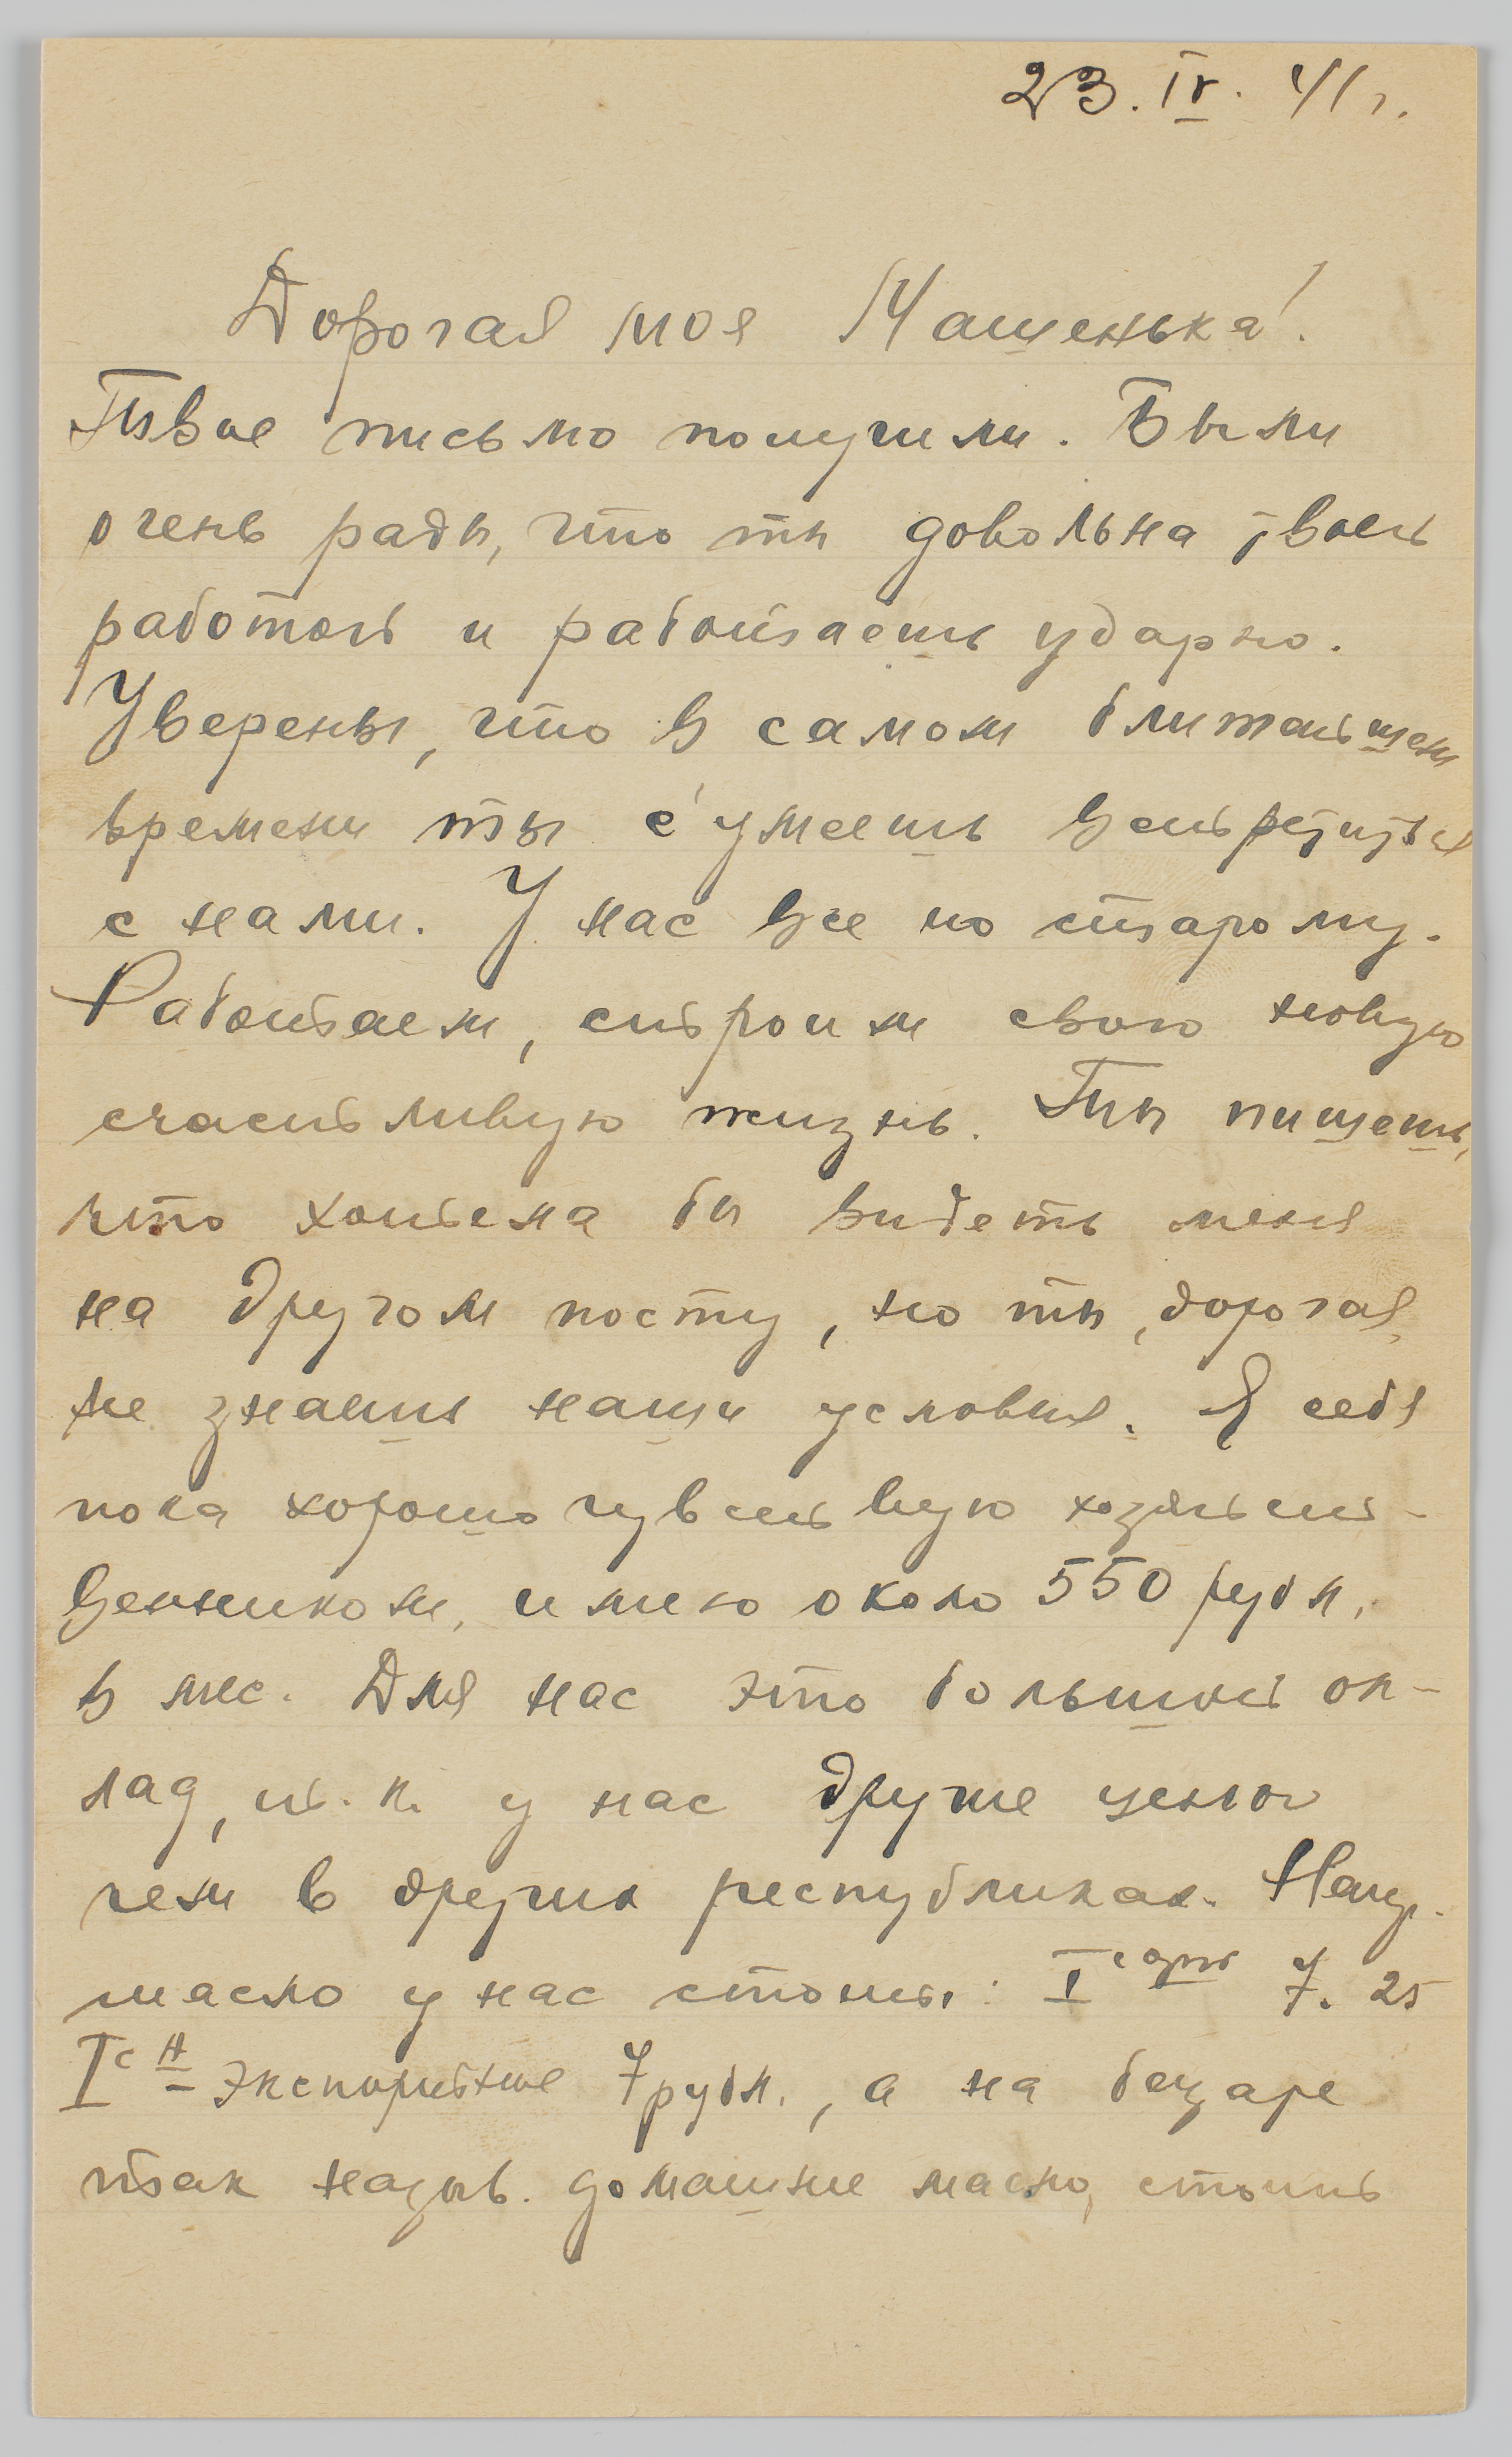 23.IV.41г.
Дорогая моя Машенька!
Твое письмо получили. Были
очень рады, что ты довольна твоей
работой и работаешь ударно.
Уверены, что в самом ближайшем
времени ты с'умеешь встретиться
с нами. У нас все по старому.
Работаем, строим свою новую
счастливую жизнь. Ты пишешь,
что хотела бы видеть меня
на другом посту, но ты, дорогая,
не знаешь наши условия. Я себя
пока хорошо чувствую хозяйст-
венником, имею около 550 рубл.
в мес. Для нас это большой ок-
лад, т.к. у нас друже цены
чем в других республиках. Напр.
масло у нас стоит: I сорт 7.25
Iс Н экспортное 7 рубл., а на базаре
так назыв. домашнее масло, стоит